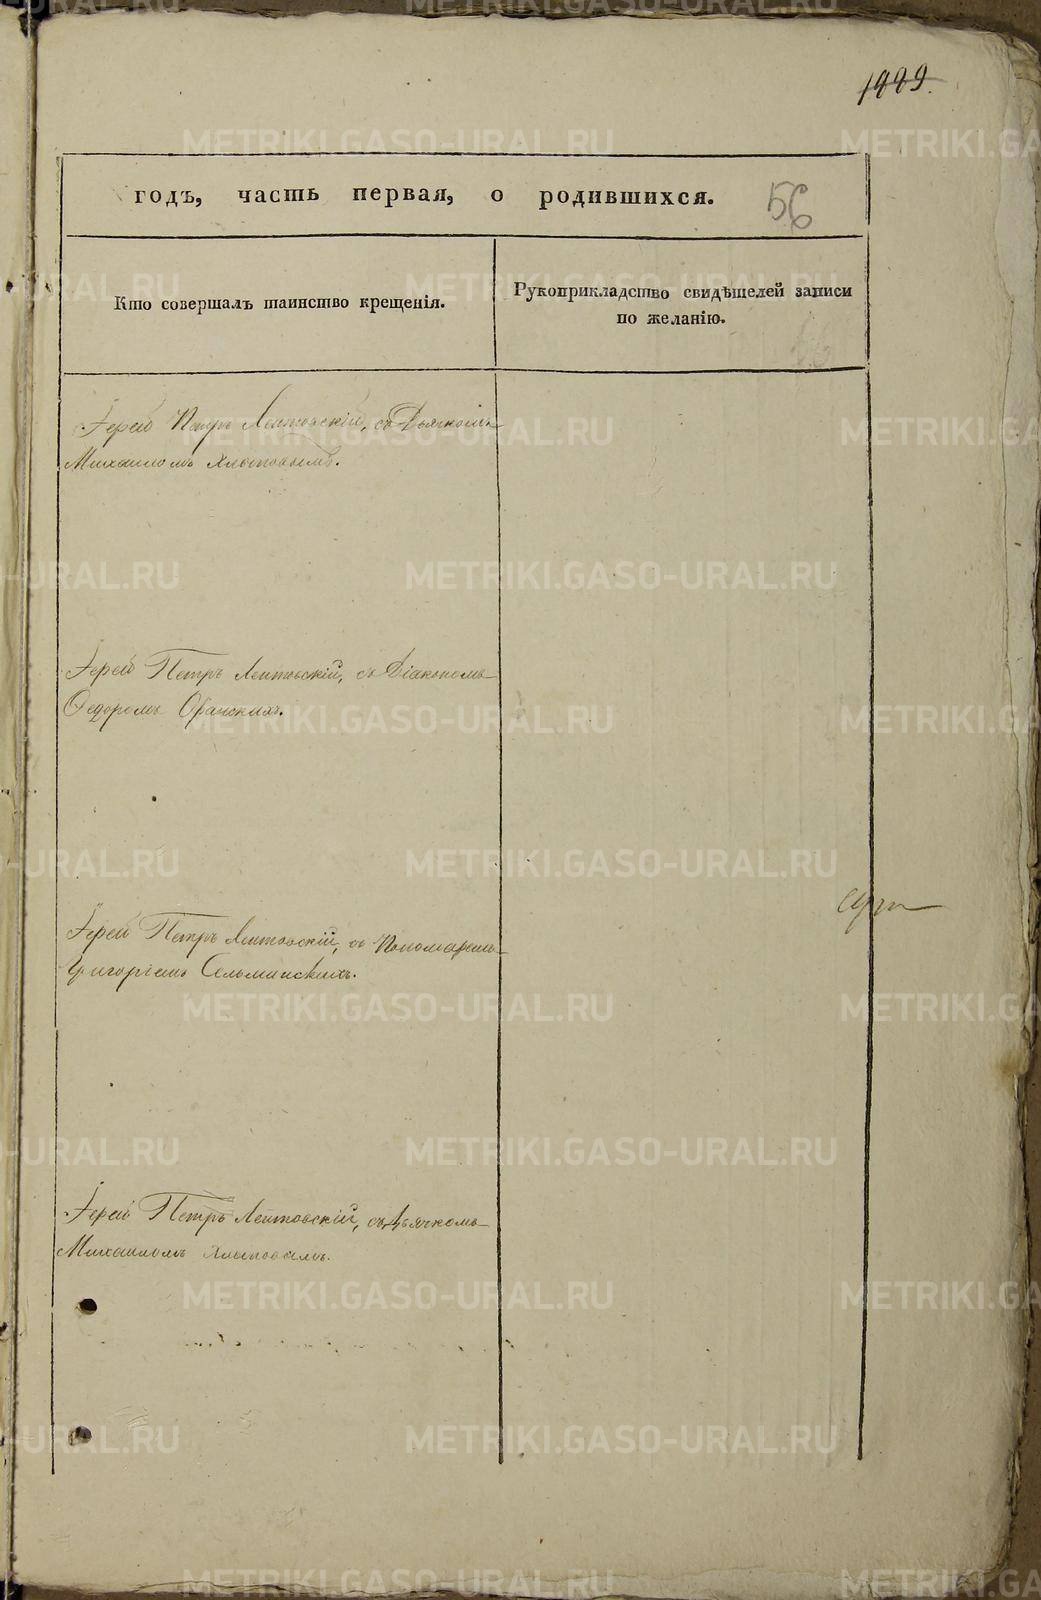 1999.
годъ, часть первая, о родившихся. 56
Кто совершалъ таинство крещенія.
Рукоприкладство свидѣтелей записи
по желанію.
Іерей Петръ Лептовскій, съ Дьячкомъ
Михаиломъ
Іерей Петръ Лептовскій, съ Діакономъ
Федоромъ
Іерей Петръ Лептовскій, съ Пономаремъ
Григоріемъ Сельминскихъ.
Іерей Петръ Лептовскій, съ Дьячкомъ
Михаиломъ
METRIKI.GASO-URAL.RU